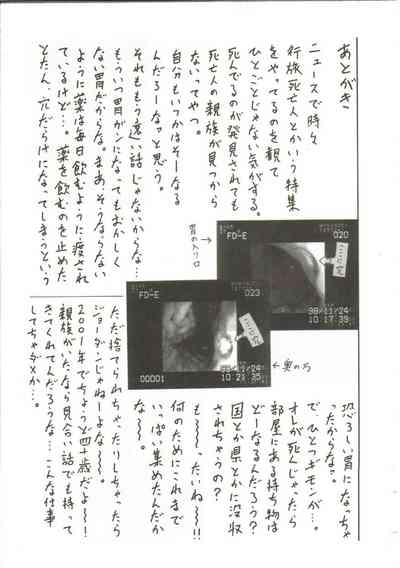 あとがき
ニュースで時々
行旅死亡人とかいう特集
をやってるのを観て
ひとごとじゃない気がする。
死んでるのが発見されても
死亡人の親族が見つから
ないってやつ。
自分もいつかはそーなる
んだろーなァと思う。
それももう遠い話じゃないからな…
もういつ胃がンになってもおかしく
ない胃だからな。まあ、そうならない
ように薬は毎日飲むように渡され
ているけど…。薬を飲むのを止めた
とたん、穴だらけになってしまうという
胃の入り口
FD-E
020
98/11/24
10:17:39
FD-E
023
98/11/24
00001
10:21:35
恐ろしい胃になっちゃ
ったからなァ。
で、ひとつギモンが…。
オレが死んじゃったら
部屋にある持ち物は
どーなるんだろう？
国とか県とかに没収
されちゃうの？
も〜〜ったいね〜〜!!
何のためにこれまで
いっぱい集めたんだか
な〜〜。
ただ捨てられちゃったりしちゃったら
ジョーダンじゃねーよな〜〜。
2001年でちょうど四十歳だよ〜〜！
親族がいたなら見合い話でも持って
きてくれてんだろうな…こんな仕事
してちゃダメか…。